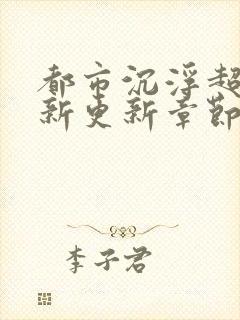 都市沉浮超
新更新章節
李子君